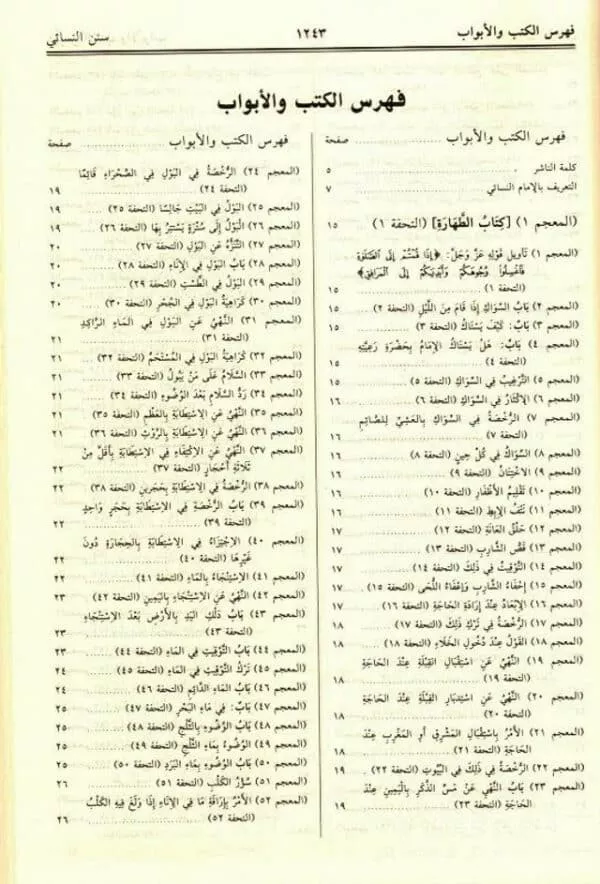 فهرس الكتب والأبواب ١٢٤٣ سنن النسائي
فهرس الكتب والأبواب
فهرس الكتب والأبواب ........ صفحة
كلمة الناشر ........ ٥
التعريف بالإمام النسائي ........ ٧
(المعجم ١) [كِتَابُ الطَّهَارَةِ] (التحفة ١) ١٥
(المعجم ١) تأويل قوله عَزَّ وَجَلَّ: ﴿إِذَا قُمْتُمْ إِلَى الصَّلَوٰةِ
فَاغْسِلُوا وُجُوهَكُمْ وَأَيْدِيَكُمْ إِلَى الْمَرَافِقِ﴾
(التحفة ١) ........ ١٥
(المعجم ٢) بَابُ السِّوَاكِ إِذَا قَامَ مِنَ اللَّيْلِ (التحفة ٢) ... ١٥
(المعجم ٣) بَابٌ: كَيْفَ يَسْتَاكُ (التحفة ٣) ........ ١٥
(المعجم ٤) بَابٌ: هَلْ يَسْتَاكُ الإِمَامُ بِحَضْرَةِ رَعِيَّتِهِ
(التحفة ٤) ........ ١٥
(المعجم ٥) التَّرْغِيبُ فِي السِّوَاكِ (التحفة ٥) ........ ١٥
(المعجم ٦) الإِكْثَارُ فِي السِّوَاكِ (التحفة ٦) ........ ١٦
(المعجم ٧) الرُّخْصَةُ فِي السِّوَاكِ بِالْعَشِيِّ لِلصَّائِمِ
(التحفة ٧) ........ ١٦
(المعجم ٨) السِّوَاكُ فِي كُلِّ حِينٍ (التحفة ٨) ........ ١٦
(المعجم ٩) الاخْتِتَانُ (التحفة ٩) ........ ١٦
(المعجم ١٠) تَقْلِيمُ الأَظْفَارِ (التحفة ١٠) ........ ١٦
(المعجم ١١) نَتْفُ الإِبِطِ (التحفة ١١) ........ ١٦
(المعجم ١٢) حَلْقُ الْعَانَةِ (التحفة ١٢) ........ ١٧
(المعجم ١٣) قَصُّ الشَّارِبِ (التحفة ١٣) ........ ١٧
(المعجم ١٤) التَّوْقِيتُ فِي ذَلِكَ (التحفة ١٤) ........ ١٧
(المعجم ١٥) إِحْفَاءُ الشَّارِبِ وَإِعْفَاءُ اللِّحَى (التحفة ١٥) . ١٧
(المعجم ١٦) الإِبْعَادُ عِنْدَ إِرَادَةِ الْحَاجَةِ (التحفة ١٦) ... ١٧
(المعجم ١٧) الرُّخْصَةُ فِي تَرْكِ ذَلِكَ (التحفة ١٧) ........ ١٨
(المعجم ١٨) الْقَوْلُ عِنْدَ دُخُولِ الْخَلَاءِ (التحفة ١٨) ... ١٨
(المعجم ١٩) النَّهْيُ عَنِ اسْتِقْبَالِ الْقِبْلَةِ عِنْدَ الْحَاجَةِ
(التحفة ١٩) ........ ١٨
(المعجم ٢٠) النَّهْيُ عَنِ اسْتِدْبَارِ الْقِبْلَةِ عِنْدَ الْحَاجَةِ
(التحفة ٢٠) ........ ١٨
(المعجم ٢١) الأَمْرُ بِاسْتِقْبَالِ الْمَشْرِقِ أَوِ الْمَغْرِبِ عِنْدَ
الْحَاجَةِ (التحفة ٢١) ........ ١٨
(المعجم ٢٢) الرُّخْصَةُ فِي ذَلِكَ فِي الْبُيُوتِ (التحفة ٢٢) .. ١٩
(المعجم ٢٣) بَابُ النَّهْيِ عَنْ مَسِّ الذَّكَرِ بِالْيَمِينِ عِنْدَ
الْحَاجَةِ (التحفة ٢٣) ........ ١٩
فهرس الكتب والأبواب ........ صفحة
(المعجم ٢٤) الرُّخْصَةُ فِي الْبَوْلِ فِي الصَّحْرَاءِ قَائِمًا
(التحفة ٢٤) ........ ١٩
(المعجم ٢٥) الْبَوْلُ فِي الْبَيْتِ جَالِسًا (التحفة ٢٥) ... ١٩
(المعجم ٢٦) الْبَوْلُ إِلَى سُتْرَةٍ يَسْتَتِرُ بِهَا (التحفة ٢٦) ... ١٩
(المعجم ٢٧) التَّنَزُّهُ عَنِ الْبَوْلِ (التحفة ٢٧) ........ ٢٠
(المعجم ٢٨) بَابُ الْبَوْلِ فِي الإِنَاءِ (التحفة ٢٨) ........ ٢٠
(المعجم ٢٩) الْبَوْلُ فِي الطَّسْتِ (التحفة ٢٩) ........ ٢٠
(المعجم ٣٠) كَرَاهِيَةُ الْبَوْلِ فِي الْجُحْرِ (التحفة ٣٠) ... ٢٠
(المعجم ٣١) النَّهْيُ عَنِ الْبَوْلِ فِي الْمَاءِ الرَّاكِدِ
(التحفة ٣١) ........ ٢١
(المعجم ٣٢) كَرَاهِيَةُ الْبَوْلِ فِي الْمُسْتَحَمِّ (التحفة ٣٢) ... ٢١
(المعجم ٣٣) السَّلَامُ عَلَى مَنْ يَبُولُ (التحفة ٣٣) ... ٢١
(المعجم ٣٤) رَدُّ السَّلَامِ بَعْدَ الْوُضُوءِ (التحفة ٣٤) ... ٢١
(المعجم ٣٥) النَّهْيُ عَنِ الِاسْتِطَابَةِ بِالْعَظْمِ (التحفة ٣٥) ٢١
(المعجم ٣٦) النَّهْيُ عَنِ الِاسْتِطَابَةِ بِالرَّوْثِ (التحفة ٣٦) ٢١
(المعجم ٣٧) النَّهْيُ عَنِ الِاكْتِفَاءِ فِي الِاسْتِطَابَةِ بِأَقَلَّ مِنْ
ثَلَاثَةِ أَحْجَارٍ (التحفة ٣٧) ........ ٢٢
(المعجم ٣٨) الرُّخْصَةُ فِي الِاسْتِطَابَةِ بِحَجَرَيْنِ (التحفة ٣٨) ٢٢
(المعجم ٣٩) بَابُ الرُّخْصَةِ فِي الِاسْتِطَابَةِ بِحَجَرٍ وَاحِدٍ
(التحفة ٣٩) ........ ٢٢
(المعجم ٤٠) الِاجْتِزَاءُ فِي الِاسْتِطَابَةِ بِالْحِجَارَةِ دُونَ
غَيْرِهَا (التحفة ٤٠) ........ ٢٢
(المعجم ٤١) الِاسْتِنْجَاءُ بِالْمَاءِ (التحفة ٤١) ........ ٢٢
(المعجم ٤٢) النَّهْيُ عَنِ الِاسْتِنْجَاءِ بِالْيَمِينِ (التحفة ٤٢) ٢٣
(المعجم ٤٣) بَابُ دَلْكِ الْيَدِ بِالأَرْضِ بَعْدَ الِاسْتِنْجَاءِ
(التحفة ٤٣) ........ ٢٣
(المعجم ٤٤) بَابُ التَّوْقِيتِ فِي الْمَاءِ (التحفة ٤٤) ... ٢٣
(المعجم ٤٥) تَرْكُ التَّوْقِيتِ فِي الْمَاءِ (التحفة ٤٥) ... ٢٤
(المعجم ٤٦) بَابُ الْمَاءِ الدَّائِمِ (التحفة ٤٦) ........ ٢٤
(المعجم ٤٧) بَابٌ: فِي مَاءِ الْبَحْرِ (التحفة ٤٧) ........ ٢٥
(المعجم ٤٨) بَابُ الْوُضُوءِ بِالثَّلْجِ (التحفة ٤٨) ........ ٢٥
(المعجم ٤٩) الْوُضُوءُ بِمَاءِ الثَّلْجِ (التحفة ٤٩) ........ ٢٥
(المعجم ٥٠) بَابُ الْوُضُوءِ بِمَاءِ الْبَرَدِ (التحفة ٥٠) ... ٢٥
(المعجم ٥١) سُؤْرُ الْكَلْبِ (التحفة ٥١) ........ ٢٦
(المعجم ٥٢) الأَمْرُ بِإِرَاقَةِ مَا فِي الإِنَاءِ إِذَا وَلَغَ فِيهِ الْكَلْبُ
(التحفة ٥٢) ........ ٢٦